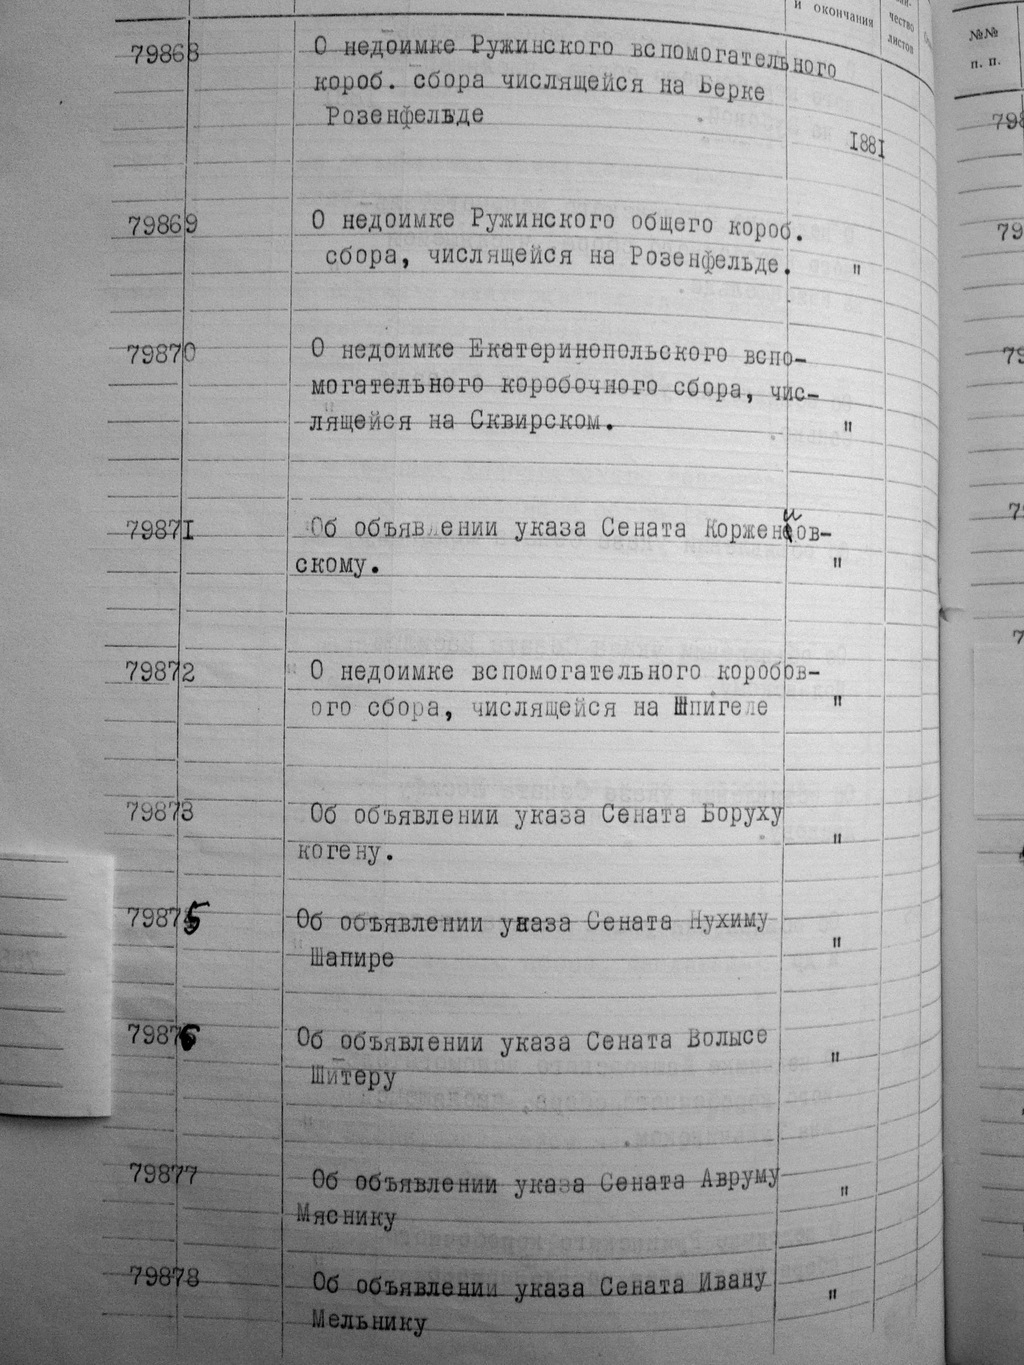 и окончания
чество
листов
№№
п. п.
79868 О недоимке Ружинского вспомогательного
короб. сбора числящейся на Берке
Розенфельде
1881
79869 О недоимке Ружинского общего короб.
сбора, числящейся на Розенфельде. "
79870 О недоимке Екатеринопольского вспо-
могательного коробочного сбора, чис-
лящейся на Сквирском. "
79871 Об объявлении указа Сената Коржениов-
скому. "
79872 О недоимке вспомогательного коробов-
ого сбора, числящейся на Шпигеле "
79873 Об объявлении указа Сената Боруху
когену. "
79875 Об объявлении указа Сената Нухиму
Шапире "
79876 Об объявлении указа Сената Волысе
Шитеру "
79877 Об объявлении указа Сената Авруму
Мяснику "
79878 Об объявлении указа Сената Ивану
Мельнику "